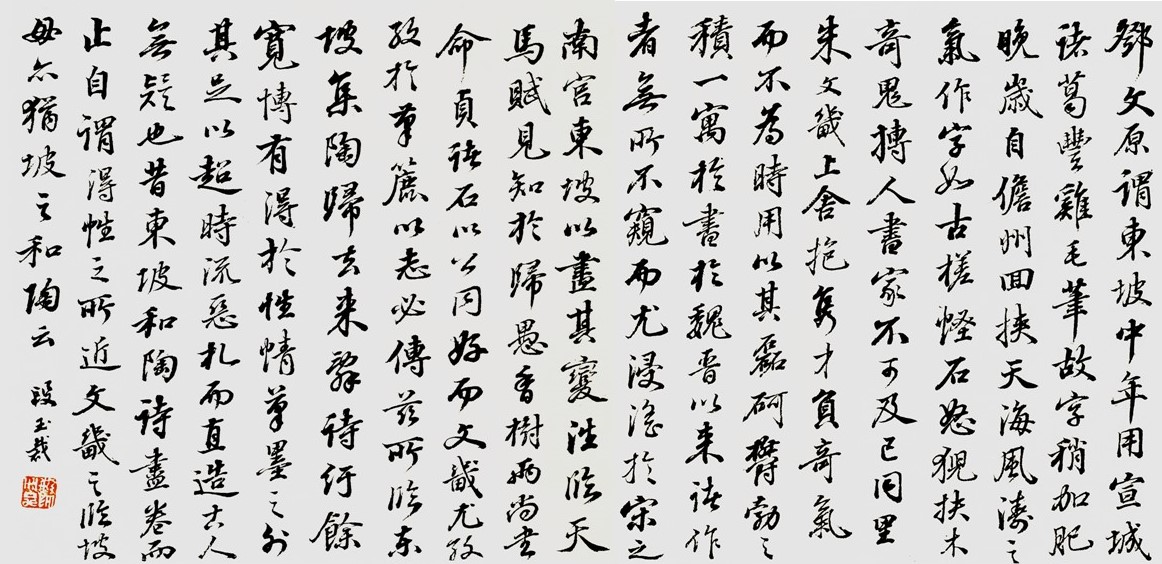 鄧文原謂東坡中年用宣城
諸葛豐雞毛筆故字稍加肥
晚歲自儋州回挾天海風濤之
氣作字如古槎怪石怒猊扶木
奇鬼搏人書家不可及已同里
朱文畿上舍抱雋才負奇氣
而不為時用以其磊砢欝勃之
積一寓於書於魏晉以来諸作
者無所不窺而尤浸淫於宋之
南宫東坡以盡其變法臨天
馬賦見知於歸愚香樹兩尚書
命貢諸石以公同好而文畿尤孜
孜於筆簏以志必傳茲所臨東
坡集陶歸去来辭詩紆餘
寬博有得於性情筆墨之外
其足以超時流惡札而直造古人
無疑也昔東坡和陶詩盡卷而
止自謂得性之所近文畿之臨坡
毋亦猶坡之和陶云 段玉裁